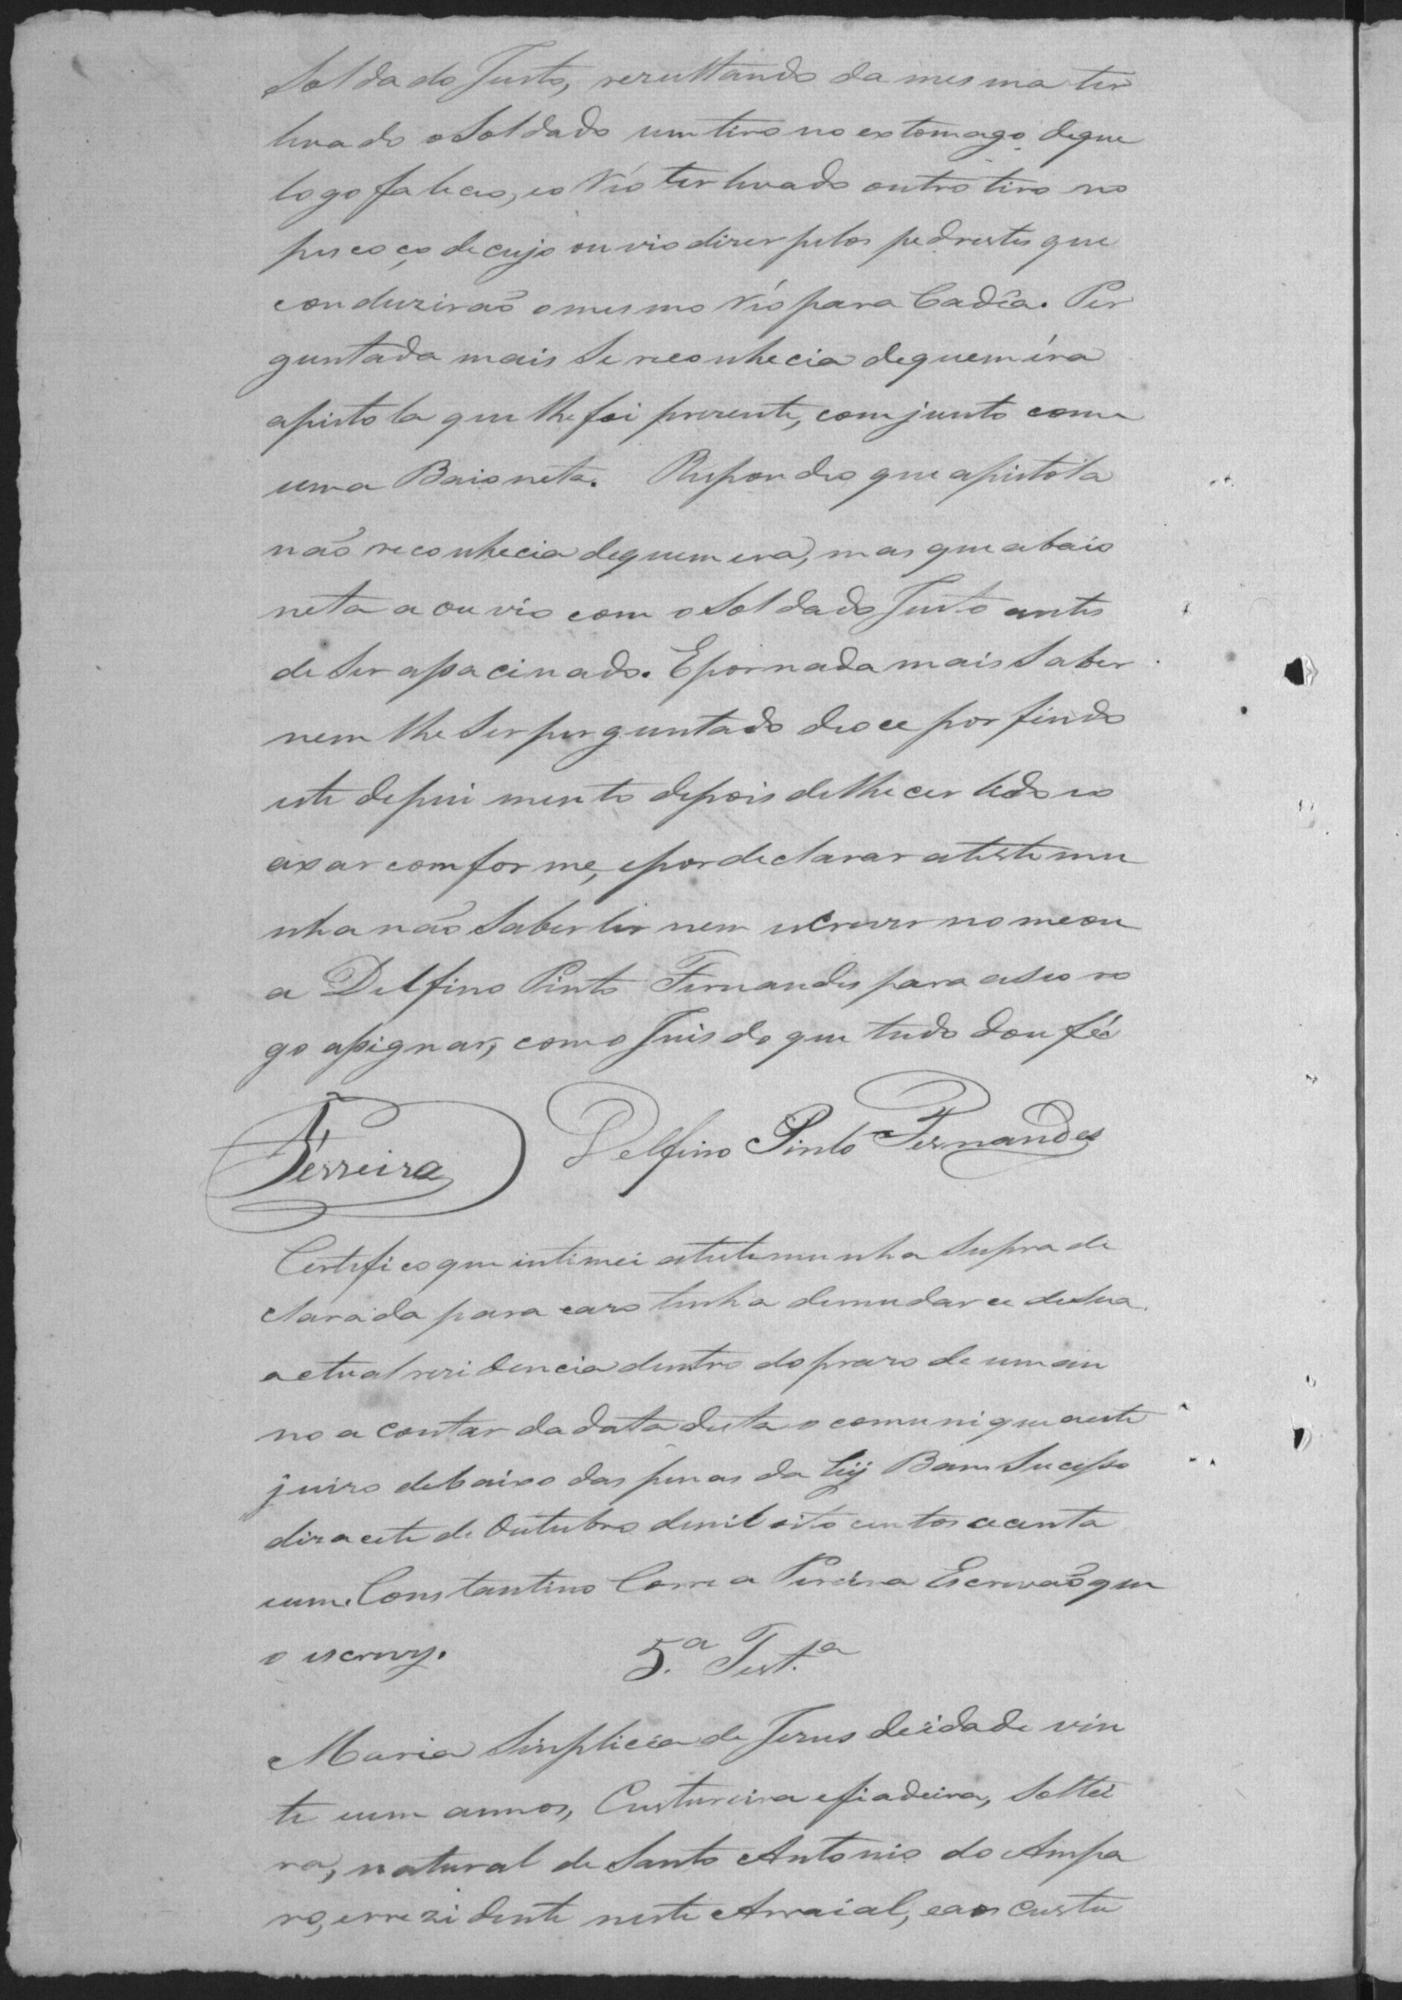 Soldado Justo, rezultando da mesma ter
levado o Soldado um tiro no estomago, de que
logo faleceo, eo Réo ter levado outro tiro no
pescoço de cujo ouvio dizer pelos pedrestes que
conduzirão o mesmo Réo para Cadêa. Per
guntada mais se reconhecia de quem éra
apistola que lhe foi prezente, com junto com
uma Baioneta. Respondeo que apistola
não reconhecia de quem era, mas que abaio
neta a ou vio com o Soldado Justo antes
de ser assacinado. E por nada mais Saber
nem lhe Ser perguntado deo ce por findo
este depui mento depois de lhe cer lido eo
axar comforme, e por declarar atestemu
nha não Saber ler nem escrever nomeou
a Delfino Pinto Fernandes para a seo ro
go assignar, com o Juis do que tudo dou fée
Ferreira Delfino Pinto Fernandes
Certifico que intimei atestemunha Supra de
clarada para cazo tenha demudar ce de Sua
actual rezidencia dentro do prazo de um an
no a contar da data desta o comunique aeste
juizo debaixo das penas da Leij Bom Sucesso
dizacete de Outubro de mil oito centos ceenta
eum. Constantino Correa Pereira Escrivão que
o escrevy. 5.ª Test.ª
Maria Simplicia de Jezus de idade vin
te eum annos, Custureira e fiadeira, Soltei
ra, natural de Santo Antonio do Ampa
ro, e rrezidente neste Arraial, e aos custu